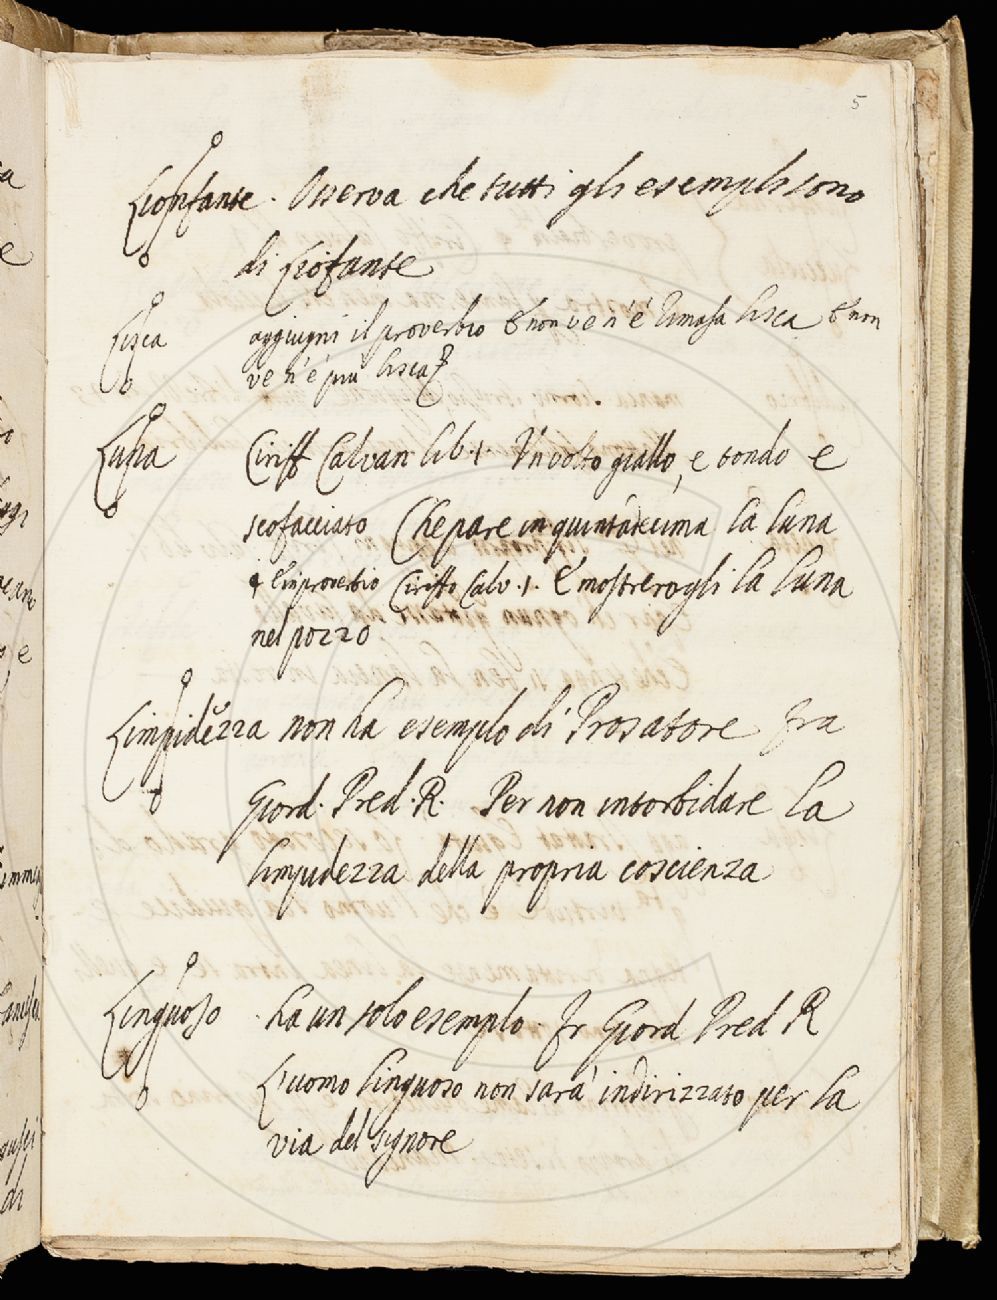 5
Lionfante. Osserva che tutti gli esempli sono
di Liofante
Lisca aggiugni il proverbio E non ve n'è rimasa lisca E non
ve n'è più lisca
Luna Ciriff Calvan lib. 1. Un volto giallo, e tondo e
scofacciato Che pare in quintadecima la luna
E in proverbio Ciriffo Calv. 1. E mostrerogli la luna
nel pozzo
Limpidezza non ha esemplo di Prosatore Fra
Giord. Pred. R. Per non intorbidare la
limpidezza della propria coscienza
Linguoso ha un solo esemplo Fr Giord Pred R
L'uomo linguoso non sarà indirizzato per la
via del signore